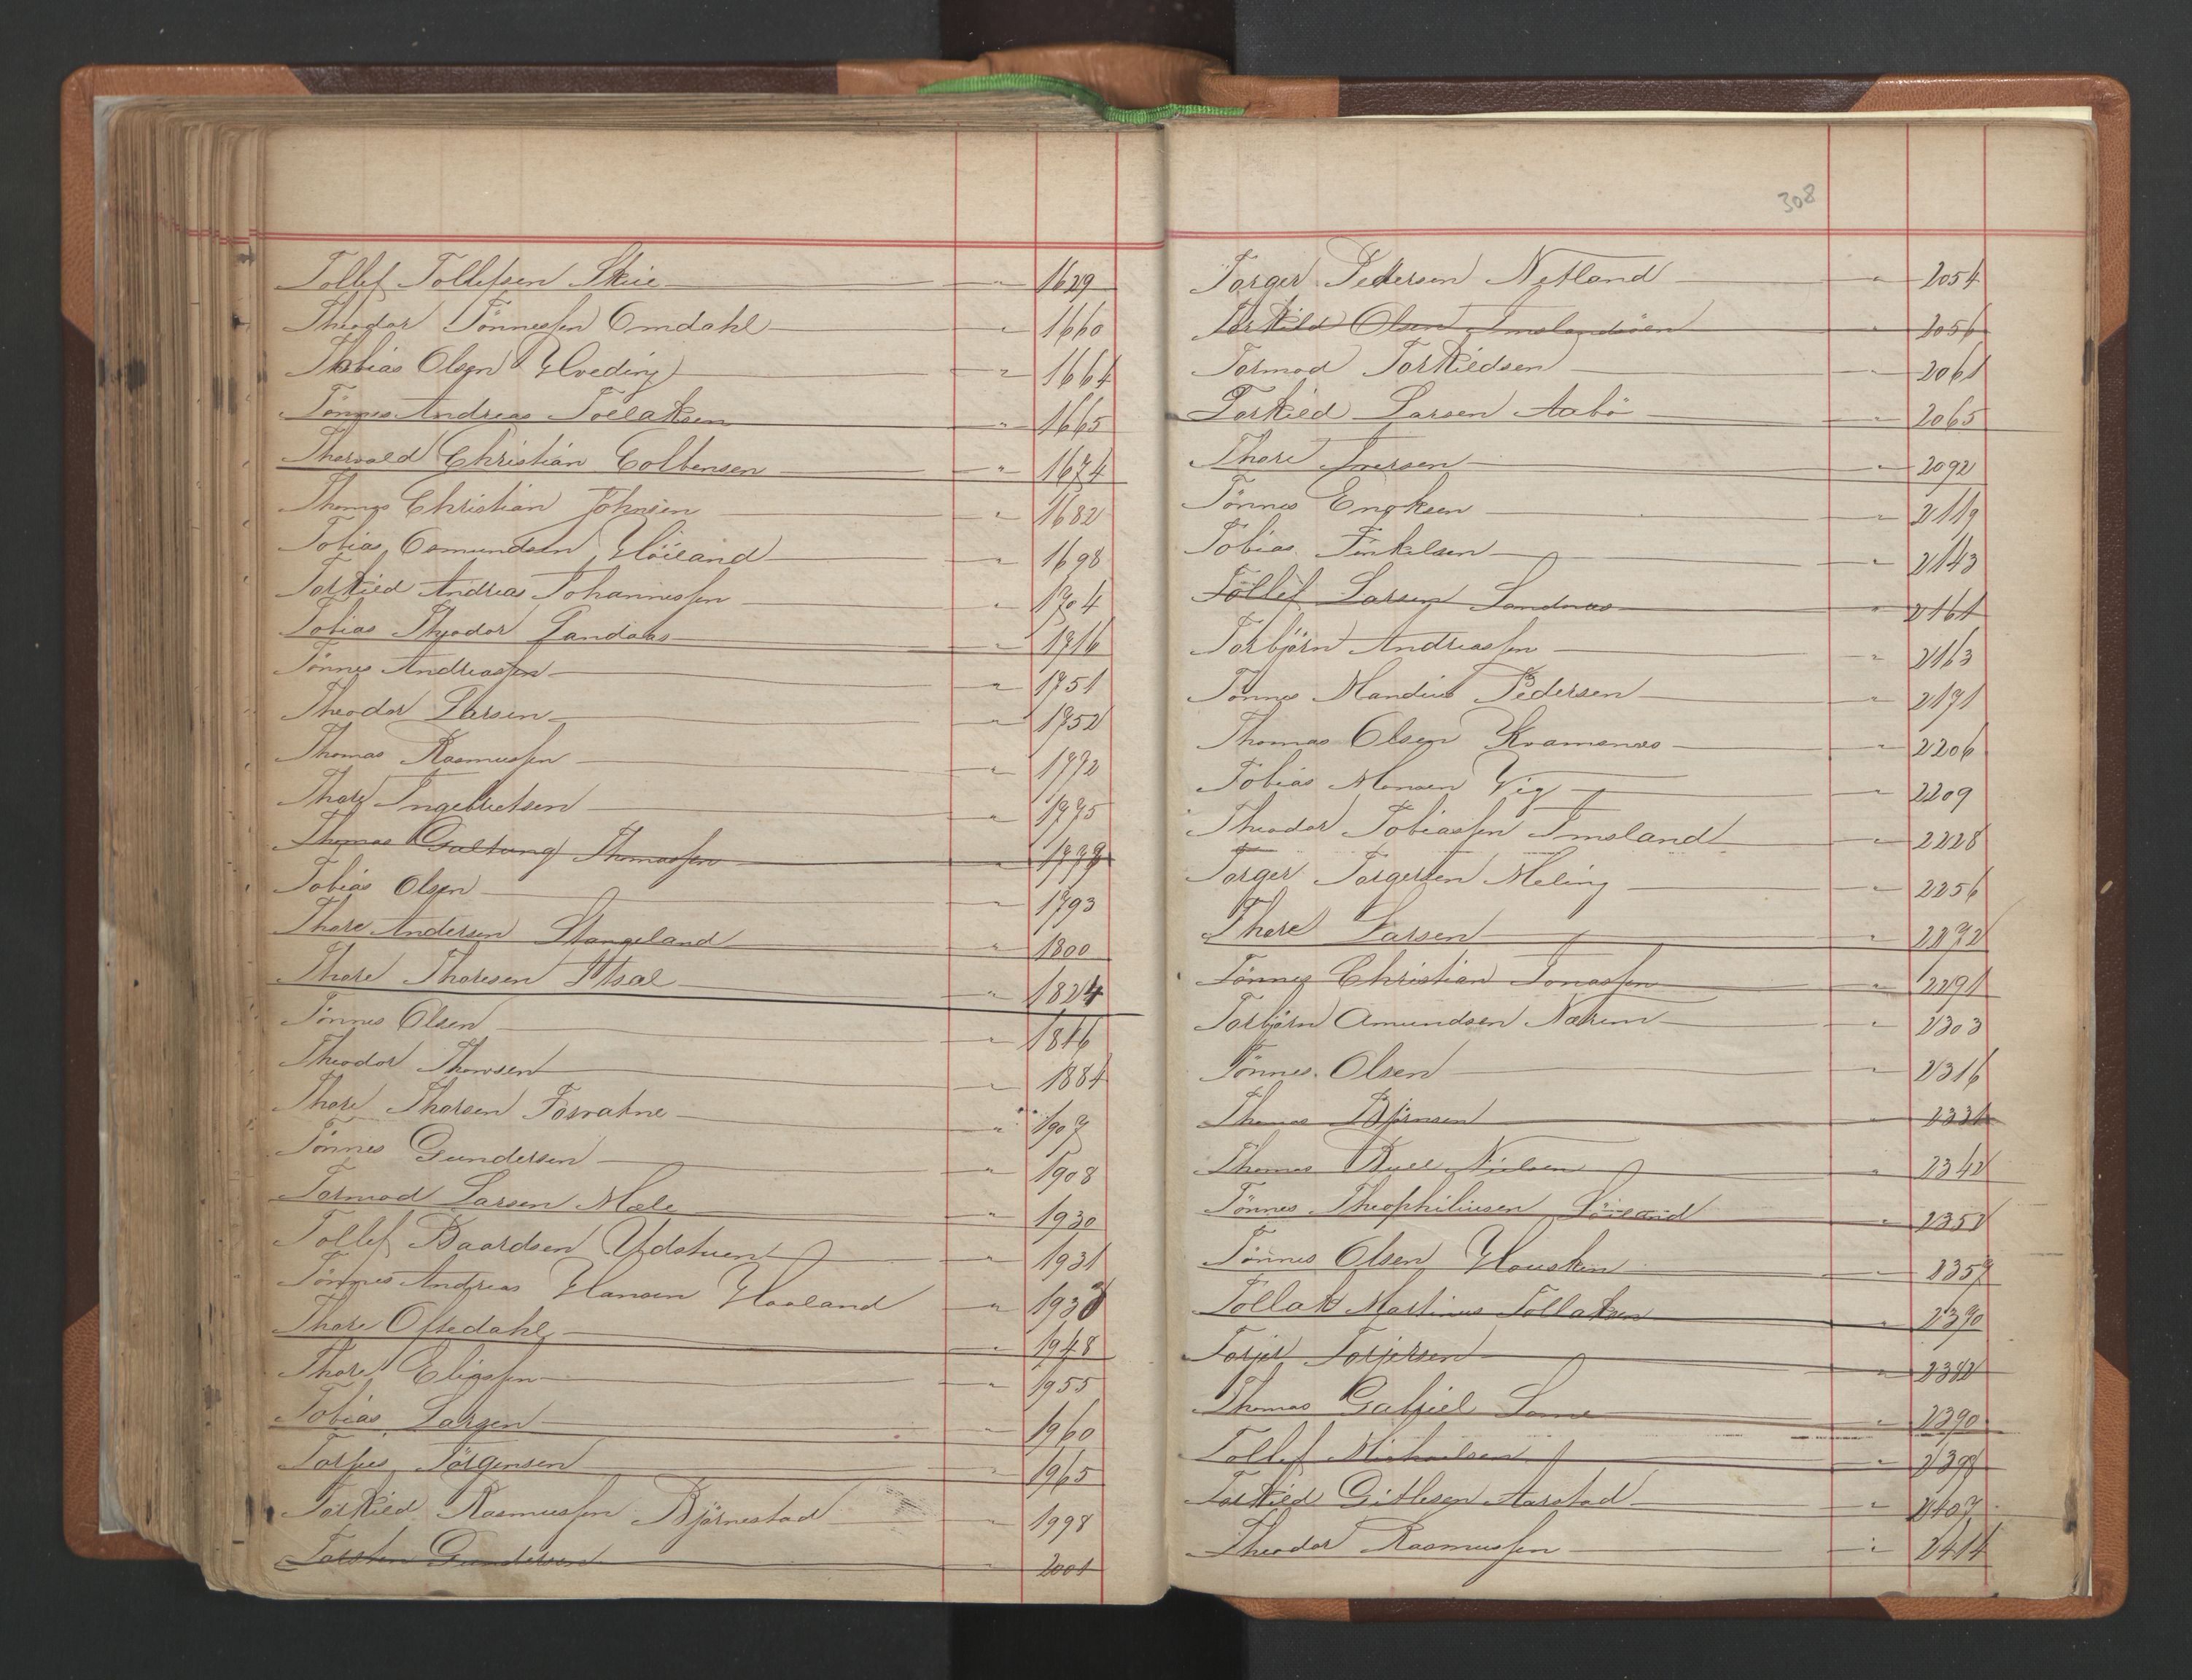 Tollef Tollefsen Skeie " 1629
Theodor Tönnessen Omdahl " 1660
Tobias Olsen Hveding " 1664
Tönnes Andreas Tollaksen " 1665
Thorvald Christian Colbensen " 1674
Thomas Christian Johnsen " 1682
Tobias Osmundsen Höiland " 1698
Torkild Andreas Johannessen " 1704
Tobias Theodor Gandaas " 1716
Tönnes Andreassen " 1751
Theodor Larsen " 1752
Thomas Rasmussen " 1772
Thore Ingebretsen 1775
Thomas Galtung Thomassen "
Tobias Olsen " 1793
Thore Andersen Stangeland " 1800
Thore Thoresen " 1824
Tönnes Olsen "
Theodor " 1884
Thore Thorsen " 1907
Tönnes Gundersen " 1908
Tormod Larsen Mæle " 1930
Tollef Baardsen Udstuen " 1931
Tönnes Andreas Hansen Haaland "
Thore Oftedahl " 1948
Thore Eliassen " 1955
Tobias Larsen " 1960
Torjus Jörgensen " 1965
Torkild Rasmussen Björnestad " 1998
Torsten Gundersen " 2001
308
Torger Pedersen Netland " 2054
Torkild Olsen Imslandsöen " 2056
Tormod Torkildsen " 2061
Torkild Larsen Aabö " 2065
Thore Iversen " 2092
Tönnes Enoksen " 2119
Tobias " 2143
Tollef Larsen Sandnæs " 2161
Torbjörn Andreassen " 2163
Tönnes Mandius Pedersen " 2171
Thomas Olsen Kvamenæs " 2206
Tobias Monsen Vig " 2209
Theodor Tobiassen Imsland " 2228
Torger Torgersen Meling " 2256
Thore Larsen " 2272
Tönnes Christian Jonassen " 2291
Torbjörn Amundsen Nærem " 2303
Tönnes Olsen " 2316
Thomas Björnsen " 2331
Thomas Bull Nielsen " 2342
Tönnes Theophiliusen Löiland " 2352
Tönnes Olsen Housken " 2357
Tollak Martinus Tollaksen "
Torjer Torjersen " 2382
Thomas Gabriel " 2390
Tollef Michaelsen " 2398
Torkild Gitlesen Aarstad " 2407
Theodor Rasmussen " 2414